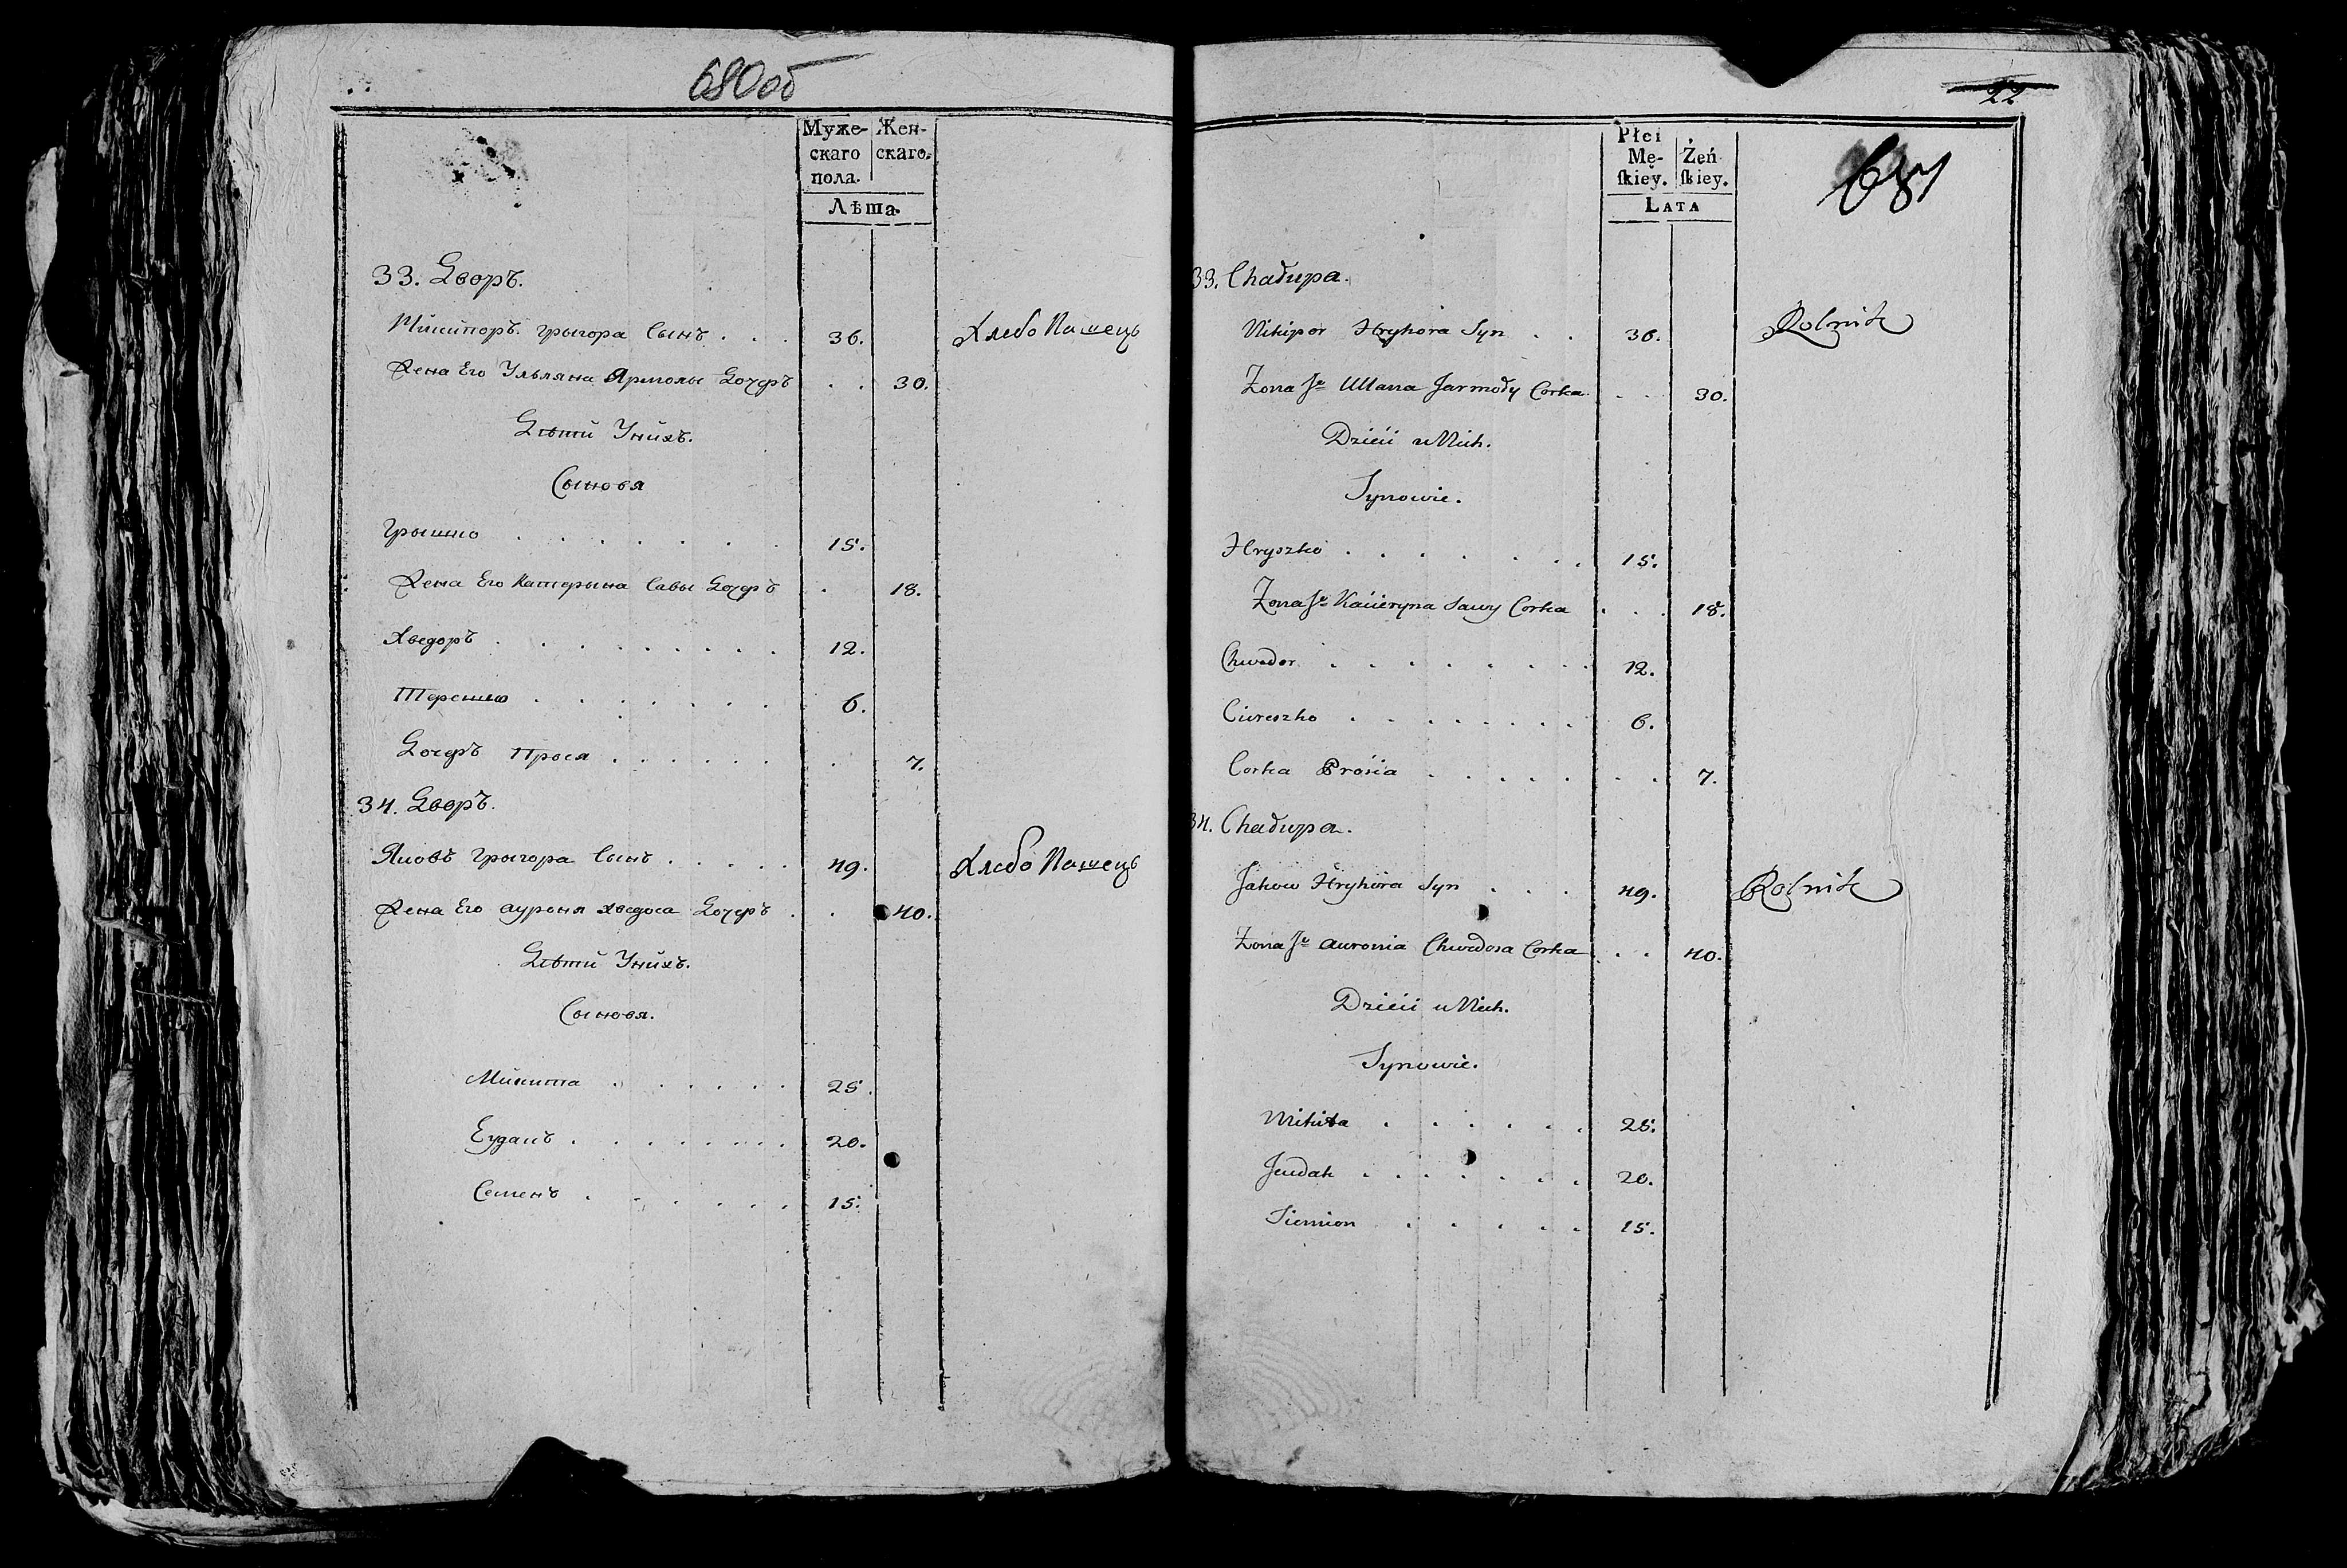 680об
Муже-
скаго
пола.
Жен-
скаго.
Лѣта.
33. Дворъ.
Микипоръ Грыгора Сынъ . . . 36. Хлебо Пашецъ
Жена Его Ульляна Ярмолы Дочеръ . . 30.
Дѣти Унихъ.
Сыновя
Грышко . . . . . . . 15.
Жена Его Катерына Савы Дочеръ . 18.
Хведоръ . . . . . . . . 12.
Терешко . . . . . . . 6.
Дочеръ Прося . . . . . . . 7.
34. Дворъ.
Яковъ Грыгора Сынъ . . . . . 49. Хлебо Пашецъ
Жена Его Ауроня Хведоса Дочеръ . . 40.
Дѣти Унихъ.
Сыновя.
Микита . . . . . . 25.
Еудакъ . . . . . . . . 20.
Семенъ . . . . . . 15.
22
681
Płci
Mę-
ſkiey.
Żeń
ſkiey.
LATA
33. Chałupa.
Nikipor Hryhora Syn . . 36. Rolnik
Zona Je Ullana Jarmoły Corka . . 30.
Dzieci u Nich.
Synowie.
Hryszko . . . . . . . 15.
Zona Je Kacieryna Sawy Corka . . . 18.
Chwedor . . . . . . . . 12.
Cireszko . . . . . . . 6.
Corka Prosia . . . . . . . 7.
34. Chałupa.
Jakow Hryhora Syn . . . 49. Rolnik
Zona Je Auronia Chwedosa Corka . . 40.
Dzieci u Nich.
Synowie.
Mikita . . . . . . 25.
Jeudak . . . . . . . 20.
Siemion . . . . . 15.